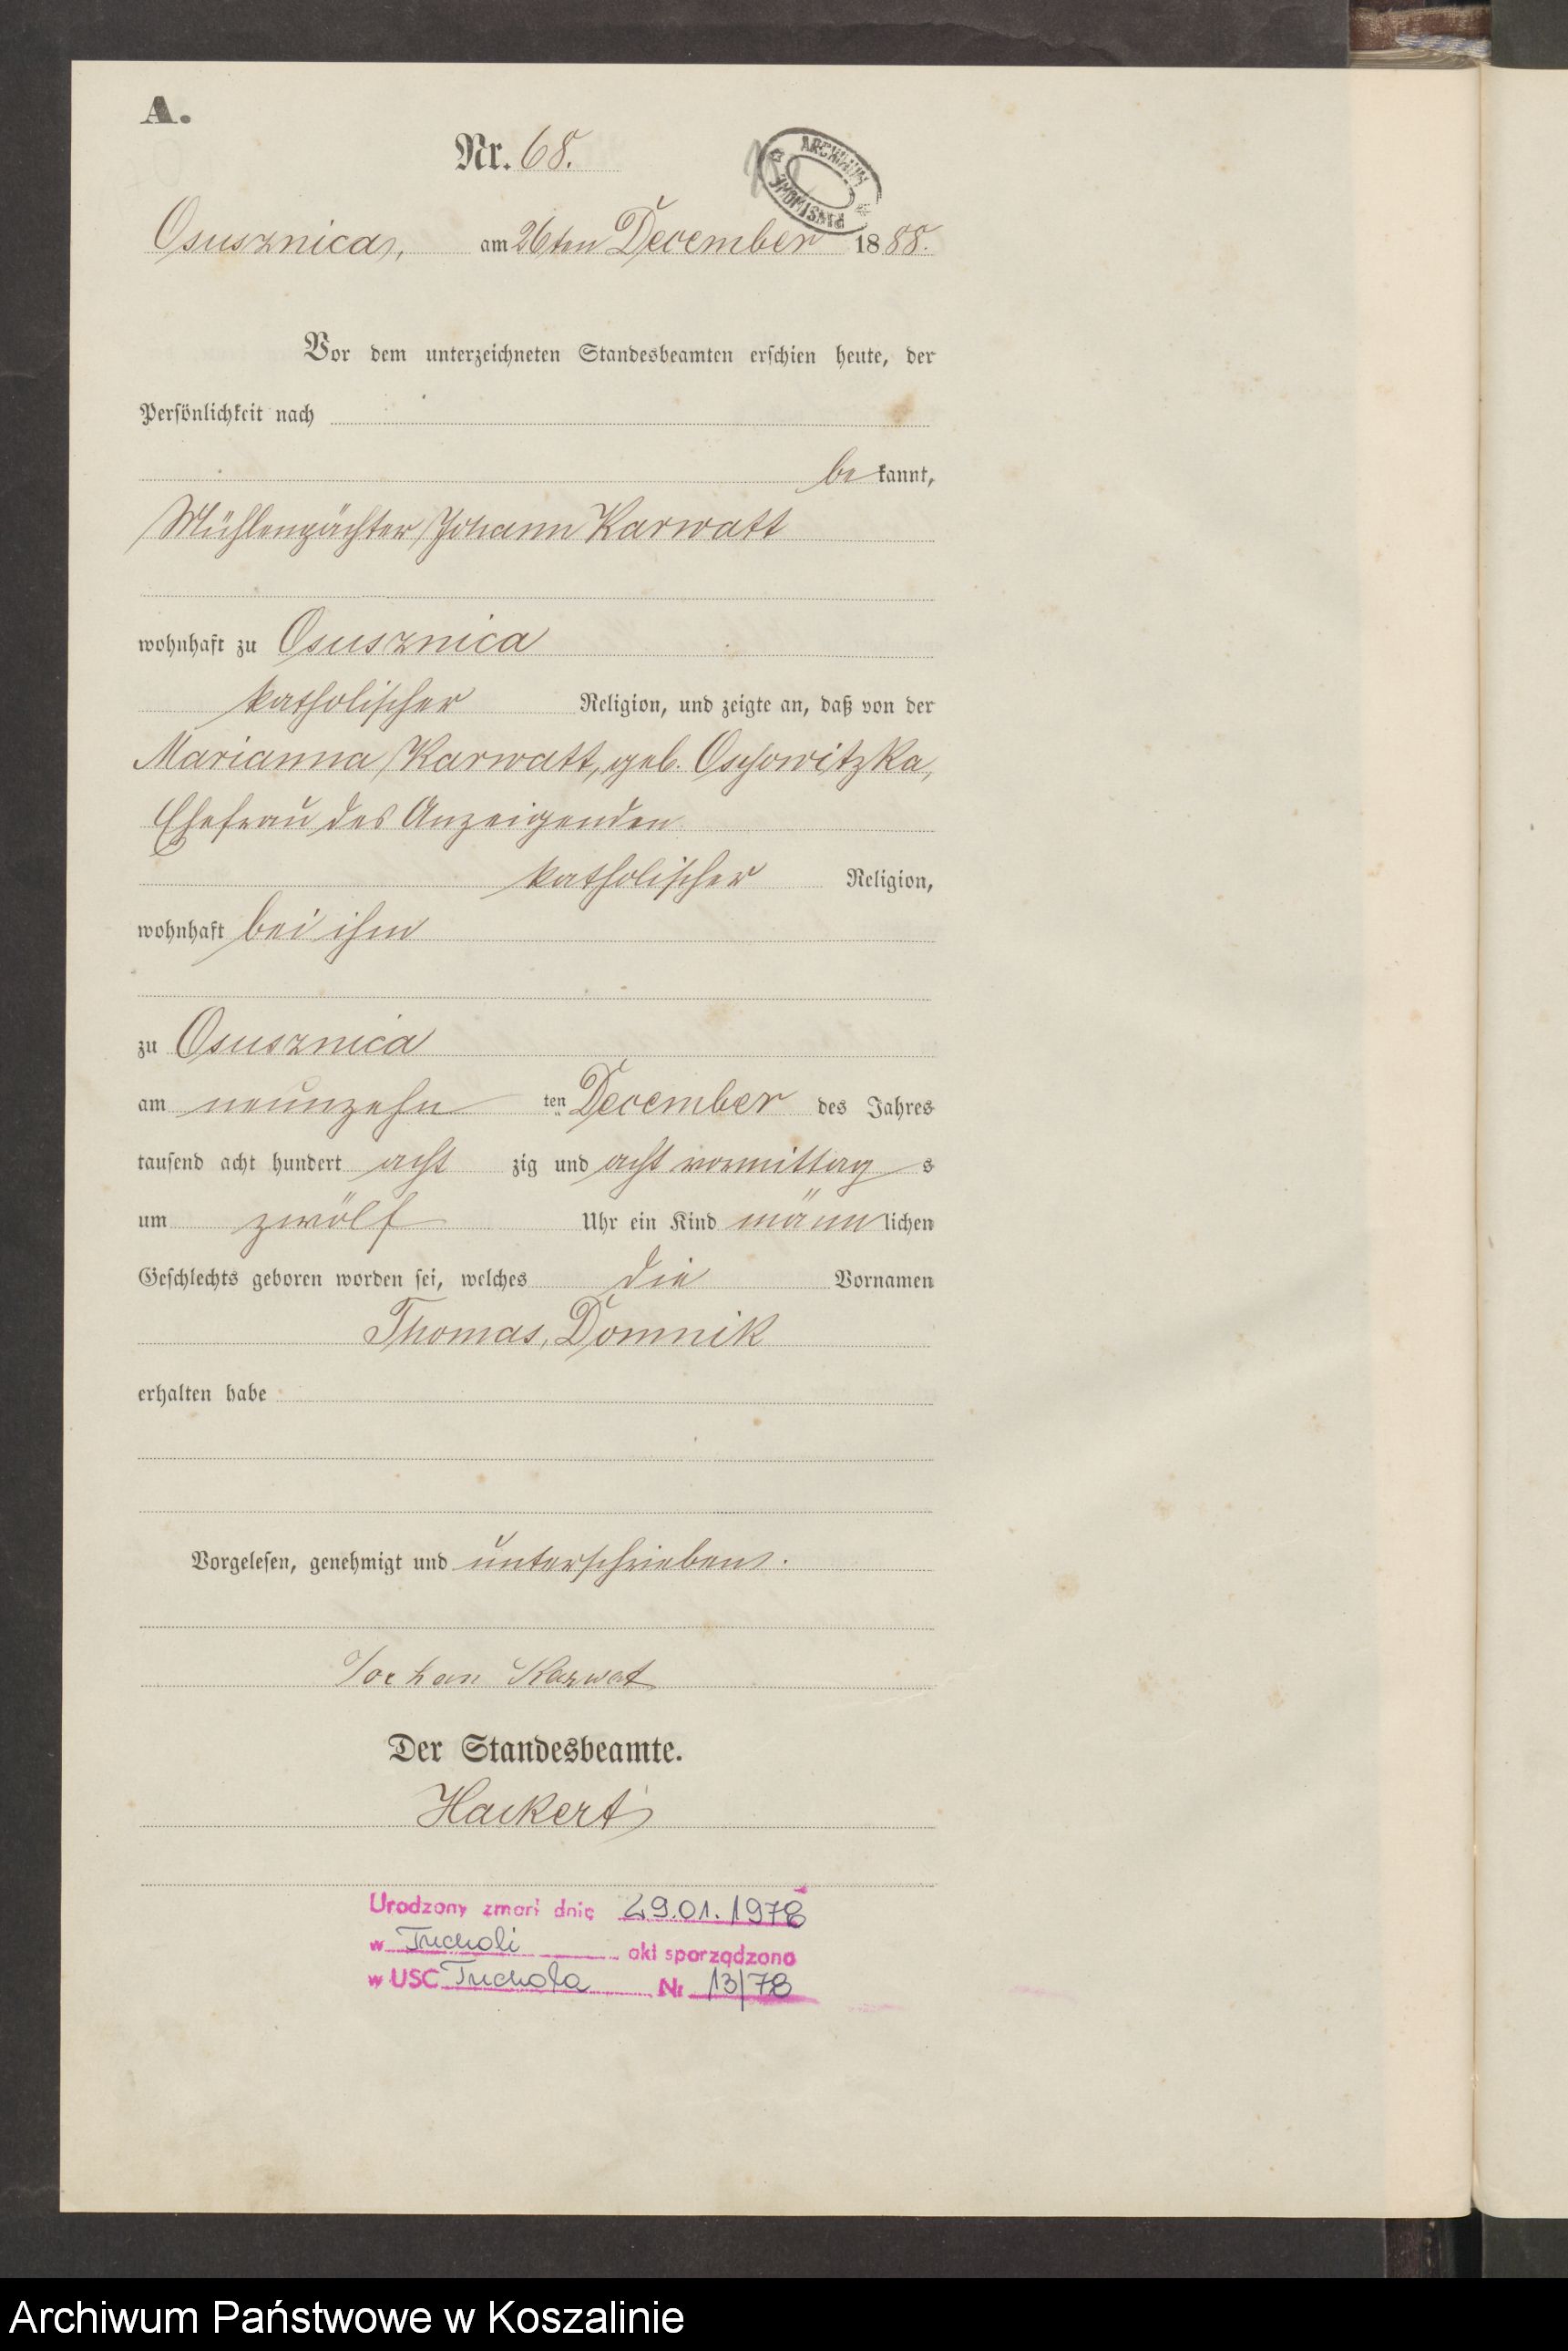 A.
Nr. 68.
ARCHIWUM PAŃSTWOWE
Osusznica, am 26ten December 1888.
Vor dem unterzeichneten Standesbeamten erschien heute, der
Persönlichkeit nach
be kannt,
Mühlenpächter Johann Karwatt
wohnhaft zu Osusznica
katholischer Religion, und zeigte an, daß von der
Marianna Karwatt, geb. Ossowitzka,
Ehefrau des Anzeigenden
katholischer Religion,
wohnhaft bei ihm
zu Osusznica
am neunzehn ten December des Jahres
tausend acht hundert acht zig und acht vormittag s
um zwölf Uhr ein Kind männ lichen
Geschlechts geboren worden sei, welches die Vornamen
Thomas, Domnik
erhalten habe
Vorgelesen, genehmigt und unterschrieben.
Karwat
Der Standesbeamte.
Hackert
Urodzony zmarł dnia 29.01.1978
w Tucholi akt sporządzono
w USC Tuchola Nr 13/78
Archiwum Państwowe w Koszalinie